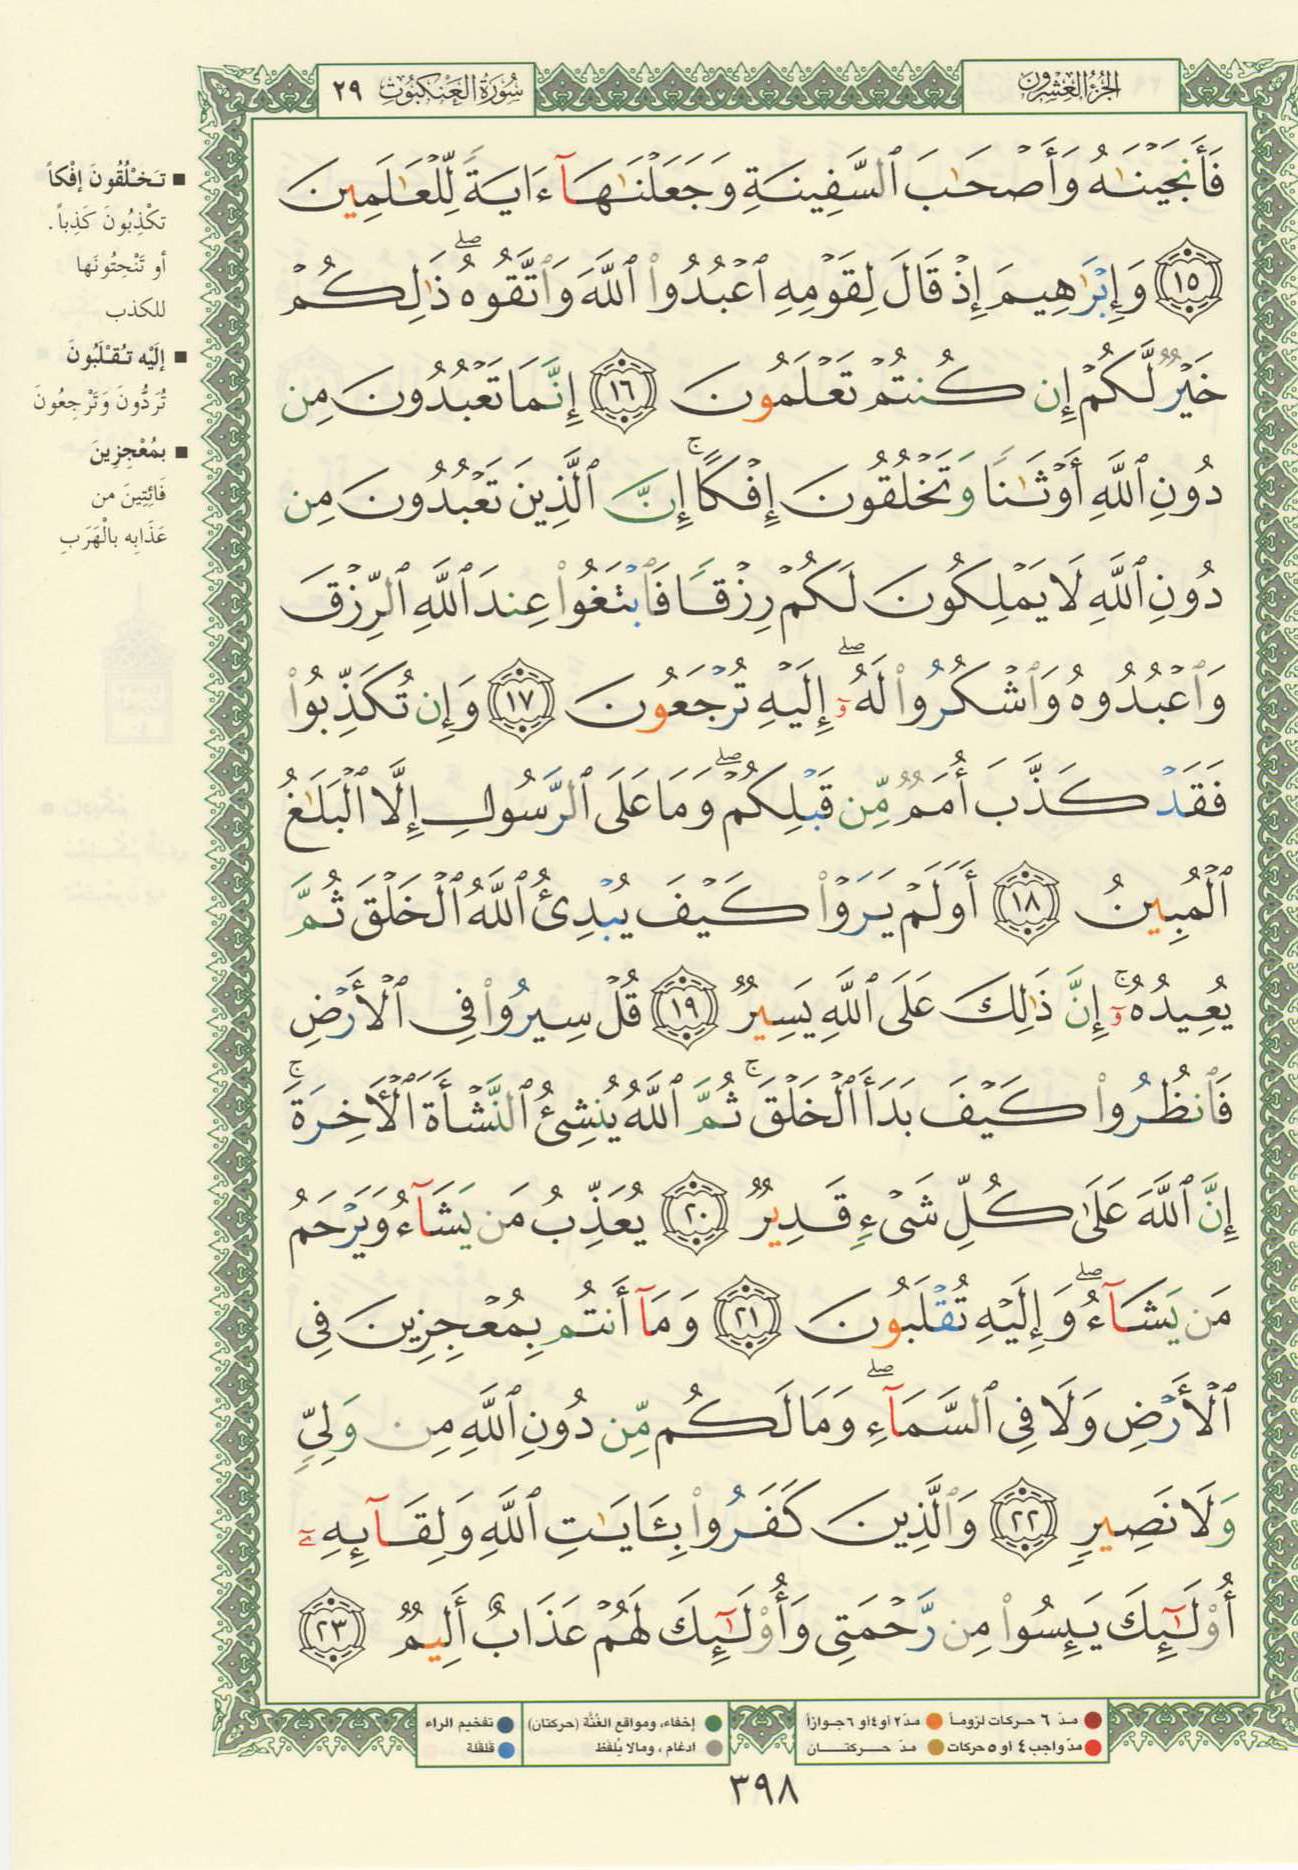 سُورَةُ العَنكبُوت ٢٩
الجُزءُ العِشْرُون
فَأَنجَيْنَٰهُ وَأَصْحَٰبَ ٱلسَّفِينَةِ وَجَعَلْنَٰهَآ ءَايَةً لِّلْعَٰلَمِينَ
١٥ وَإِبْرَٰهِيمَ إِذْ قَالَ لِقَوْمِهِ ٱعْبُدُوا۟ ٱللَّهَ وَٱتَّقُوهُ ۖ ذَٰلِكُمْ
خَيْرٌ لَّكُمْ إِن كُنتُمْ تَعْلَمُونَ ١٦ إِنَّمَا تَعْبُدُونَ مِن
دُونِ ٱللَّهِ أَوْثَٰنًا وَتَخْلُقُونَ إِفْكًا ۚ إِنَّ ٱلَّذِينَ تَعْبُدُونَ مِن
دُونِ ٱللَّهِ لَا يَمْلِكُونَ لَكُمْ رِزْقًا فَٱبْتَغُوا۟ عِندَ ٱللَّهِ ٱلرِّزْقَ
وَٱعْبُدُوهُ وَٱشْكُرُوا۟ لَهُۥٓ ۖ إِلَيْهِ تُرْجَعُونَ ١٧ وَإِن تُكَذِّبُوا۟
فَقَدْ كَذَّبَ أُمَمٌ مِّن قَبْلِكُمْ ۖ وَمَا عَلَى ٱلرَّسُولِ إِلَّا ٱلْبَلَٰغُ
ٱلْمُبِينُ ١٨ أَوَلَمْ يَرَوْا۟ كَيْفَ يُبْدِئُ ٱللَّهُ ٱلْخَلْقَ ثُمَّ
يُعِيدُهُۥٓ ۚ إِنَّ ذَٰلِكَ عَلَى ٱللَّهِ يَسِيرٌ ١٩ قُلْ سِيرُوا۟ فِى ٱلْأَرْضِ
فَٱنظُرُوا۟ كَيْفَ بَدَأَ ٱلْخَلْقَ ۚ ثُمَّ ٱللَّهُ يُنشِئُ ٱلنَّشْأَةَ ٱلْءَاخِرَةَ ۚ
إِنَّ ٱللَّهَ عَلَىٰ كُلِّ شَىْءٍ قَدِيرٌ ٢٠ يُعَذِّبُ مَن يَشَآءُ وَيَرْحَمُ
مَن يَشَآءُ ۖ وَإِلَيْهِ تُقْلَبُونَ ٢١ وَمَآ أَنتُم بِمُعْجِزِينَ فِى
ٱلْأَرْضِ وَلَا فِى ٱلسَّمَآءِ ۖ وَمَا لَكُم مِّن دُونِ ٱللَّهِ مِن وَلِىٍّ
وَلَا نَصِيرٍ ٢٢ وَٱلَّذِينَ كَفَرُوا۟ بِـَٔايَٰتِ ٱللَّهِ وَلِقَآئِهِۦٓ
أُو۟لَٰٓئِكَ يَئِسُوا۟ مِن رَّحْمَتِى وَأُو۟لَٰٓئِكَ لَهُمْ عَذَابٌ أَلِيمٌ ٢٣
■ تَخْلُقُونَ إفْكاً
تَكْذِبُونَ كَذِباً.
أو تَنْحِتُونَها
للكذب
■ إلَيْه تُقْلَبُونَ
تُرَدُّونَ وَتَرْجِعُونَ
■ بمُعْجِزِينَ
فَائِتِينَ من
عَذَابِه بالْهَرَبِ
مدّ ٦ حركات لزوماً مدّ٢ أو٤أو ٦جوازاً
مدّ واجب ٤ أو ٥ حركات مدّ حركتان
إخفاء، ومواقع الغُنَّة (حركتان) تفخيم الراء
ادغام ، ومالا يُلفظ قلقلة
٣٩٨